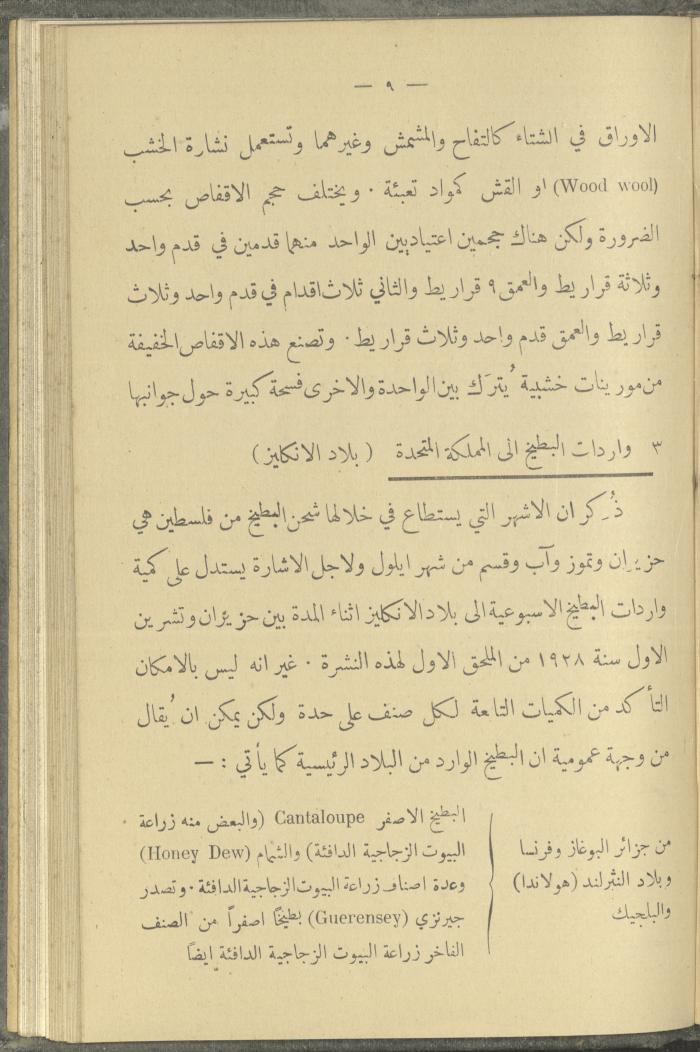 — ٩ —
الاوراق في الشتاء كالتفاح والمشمش وغيرهما وتستعمل نشارة الخشب
(Wood wool) او القش كمواد تعبئة . ويختلف حجم الاقفاص بحسب
الضرورة ولكن هناك حجمين اعتياديين الواحد منهما قدمين في قدم واحد
وثلاثة قراريط والعمق ٩ قراريط والثاني ثلاث اقدام في قدم واحد وثلاث
قراريط والعمق قدم واحد وثلاث قراريط . وتصنع هذه الاقفاص الخفيفة
من مورينات خشبية يُترَك بين الواحدة والاخرى فسحة كبيرة حول جوانبها
٣ واردات البطيخ الى المملكة المتحدة ( بلاد الانكليز )
ذُكر ان الاشهر التي يستطاع في خلالها شحن البطيخ من فلسطين هي
حزيران وتموز وآب وقسم من شهر ايلول ولاجل الاشارة يستدل على كمية
واردات البطيخ الاسبوعية الى بلاد الانكليز اثناء المدة بين حزيران وتشرين
الاول سنة ١٩٢٨ من الملحق الاول لهذه النشرة . غير انه ليس بالامكان
التأكد من الكميات التابعة لكل صنف على حدة ولكن يمكن ان يُقال
من وجهة عمومية ان البطيخ الوارد من البلاد الرئيسية كما يأتي : —
من جزائر البوغاز وفرنسا
وبلاد النثرلند (هولاندا)
والبلجيك
البطيخ الاصفر Cantaloupe (والبعض منه زراعة
البيوت الزجاجية الدافئة) والشمام (Honey Dew)
وعدة اصناف زراعة البيوت الزجاجية الدافئة . وتصدر
جيرنزي (Guerensey) بطيخًا اصفراً من الصنف
الفاخر زراعة البيوت الزجاجية الدافئة ايضاً